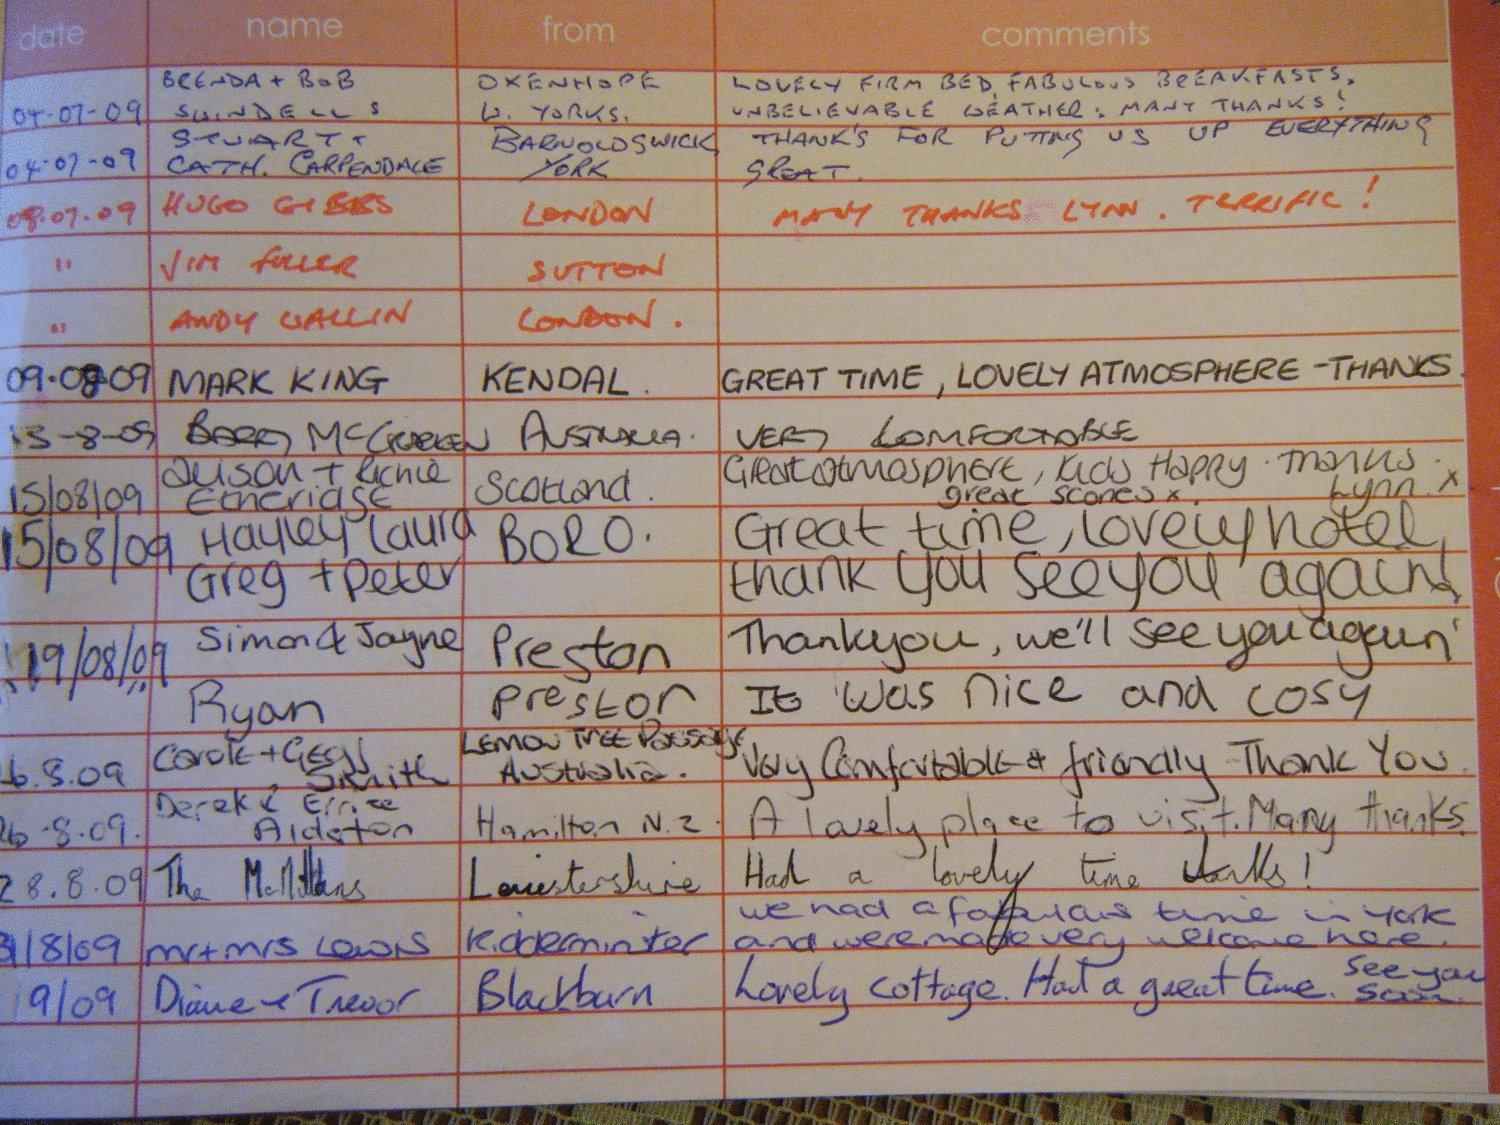 date name from comments
BRENDA + BOB OXENHOPE LOVELY FIRM BED, FABULOUS BREAKFASTS,
04-07-09 SWINDELLS W. YORKS. UNBELIEVABLE WEATHER. MANY THANKS!
STUART + BARNOLDSWICK THANK'S FOR PUTTING US UP EVERYTHING
04-07-09 CATH. CARPENDALE YORK GREAT.
08.07.09 HUGO GIBBS LONDON MANY THANKS LYNN. TERRIFIC!
" JIM FULLER SUTTON
" ANDY WALLIN LONDON.
09.08.09 MARK KING KENDAL. GREAT TIME, LOVELY ATMOSPHERE - THANKS.
13-8-09 BARRY McCRACKEN AUSTRALIA. VERY COMFORTABLE
Alison + Richie Great atmosphere, kids Happy. Thanks
15/08/09 Etheridge Scotland. great scones x. Lynn. x
15/08/09 Hayley Laura BORO. Great time, lovely hotel,
Greg + Peter thank you see you again!
19/08/09 Simon & Jayne Preston Thankyou, we'll see you again
Ryan Preston It was nice and cosy
Carole + Geoff LEMON TREE Passage
26.8.09 Smith Australia. Very Comfortable & friendly - Thank You.
Derek &
26-8.09. Alderton Hamilton N.Z. A lovely place to visit. Many thanks.
28.8.09 The McMillans Leicestershire Had a lovely time thanks!
we had a fabulous time in York
31/8/09 mr + mrs Lewis Kidderminster and were made very welcome here.
9/09 Diane & Trevor Blackburn Lovely cottage. Had a great time. See you
soon.